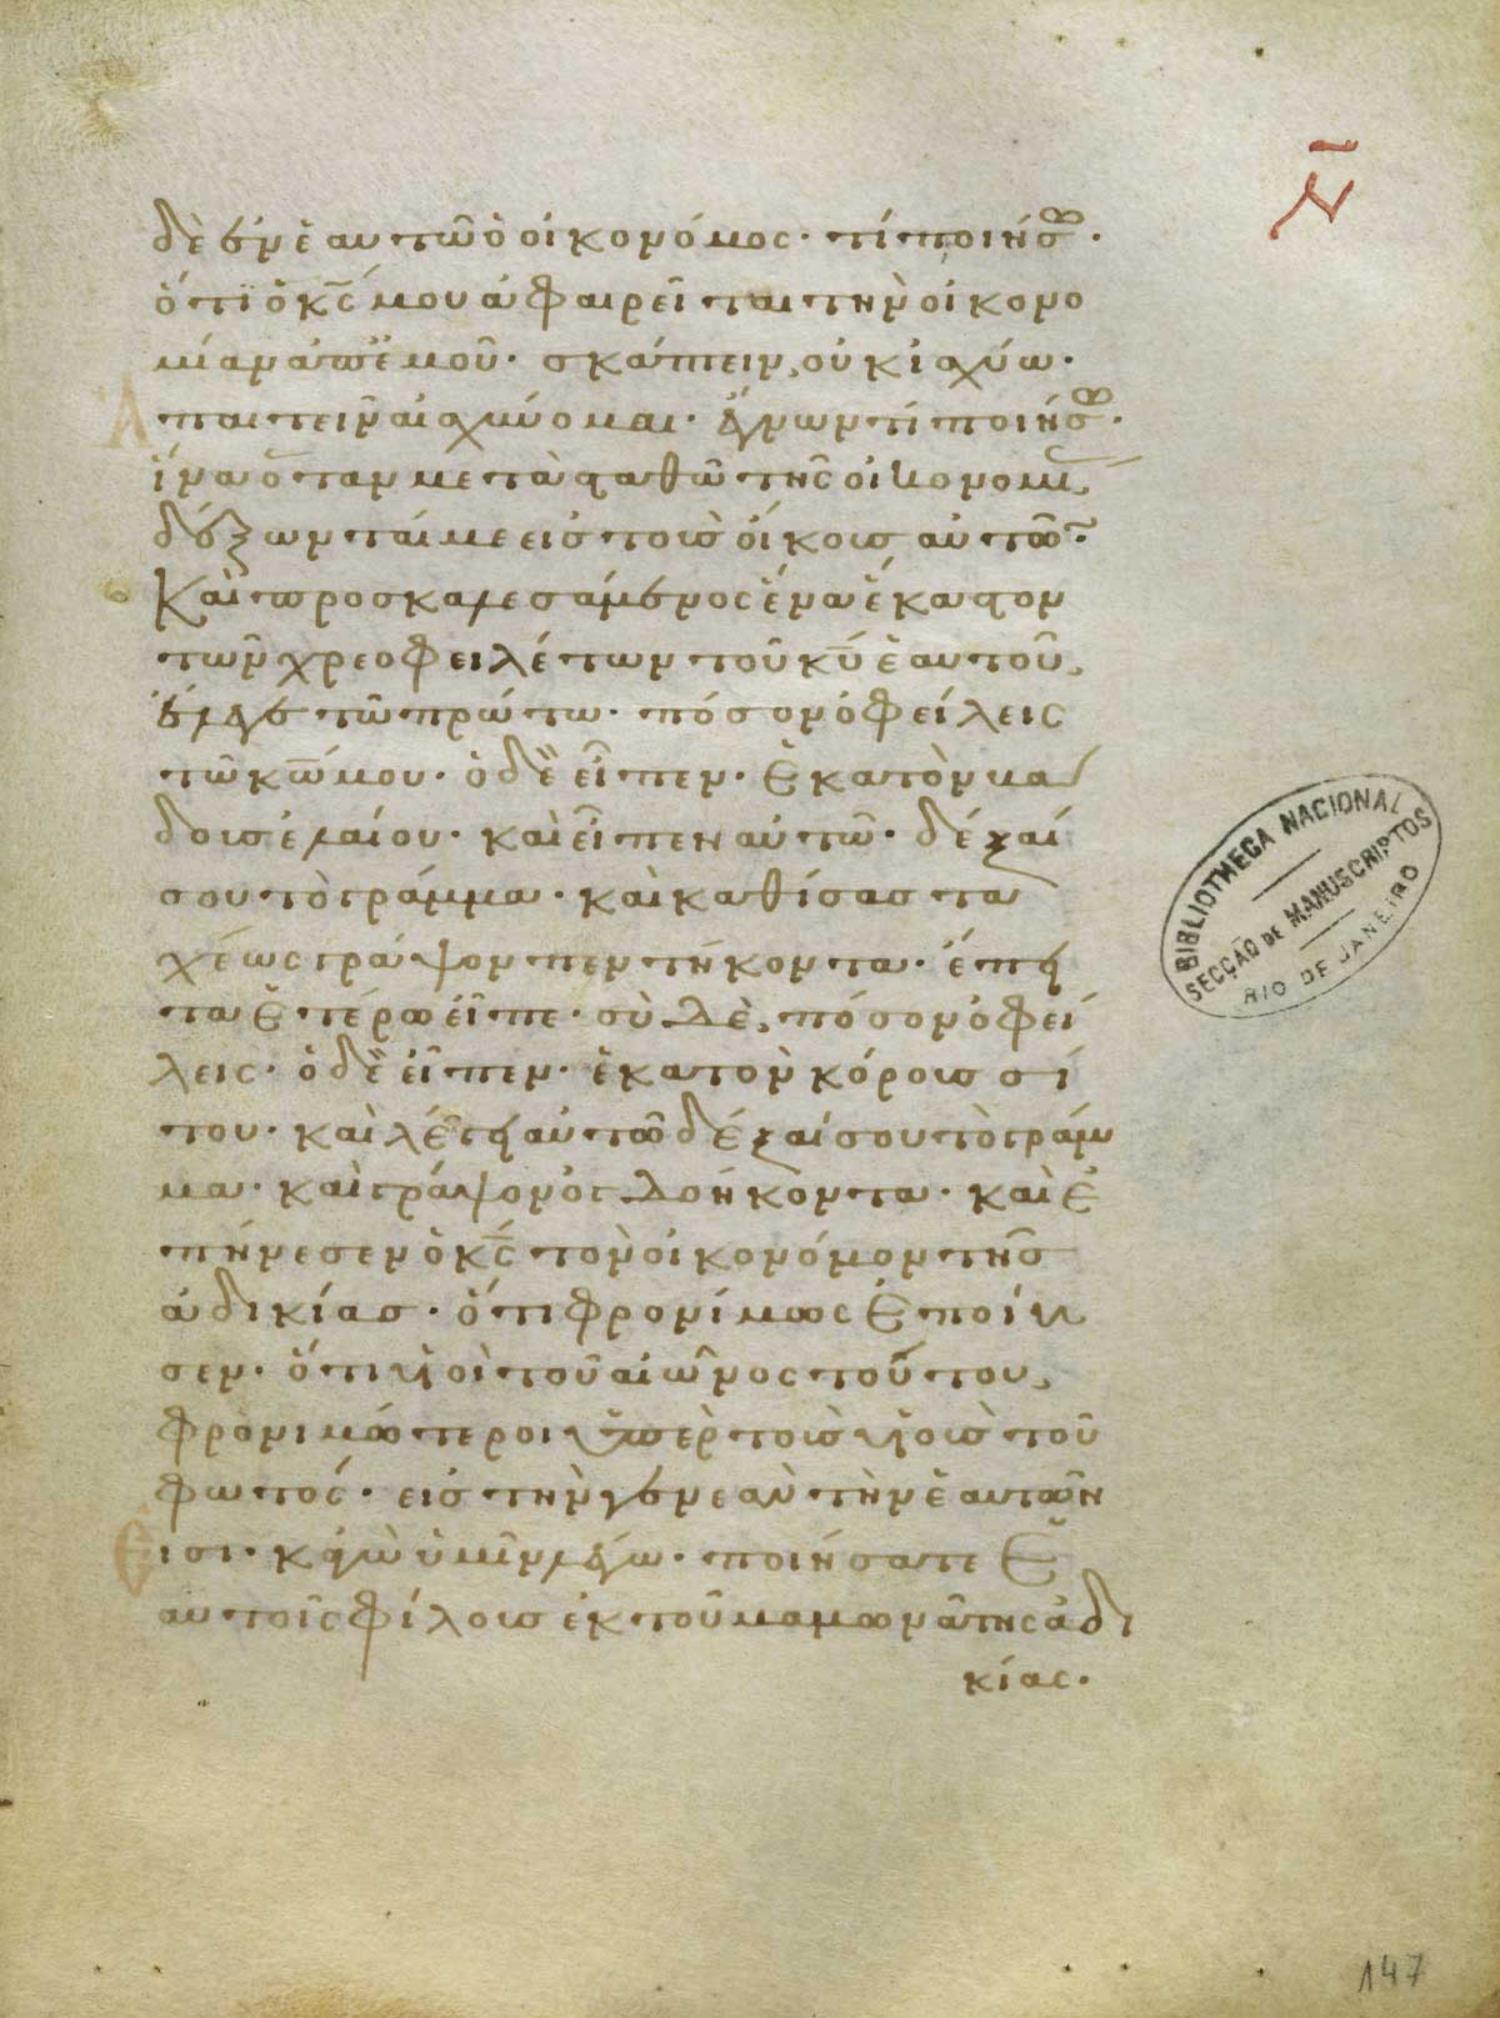 Ν̅
δὲ ἐν ἑαυτῶ ὁ οἰκονόμος· τί ποιήσω·
ὅτι ὁ κ̅ς μου ἀφαιρεῖται τὴν οἰκονο
μίαν ἀπ' ἐμοῦ· σκάπτειν, οὐκ ἰσχύω·
ἐπαιτεῖν αἰσχύνομαι· ἔγνων τί ποιήσω·
ἵνα ὅταν μετασταθῶ τῆς οἰκονομίας,
δέξωνταί με εἰς τοὺς οἴκους αὐτῶν·
Καὶ προσκαλεσάμενος ἕνα ἕκαστον
τῶν χρεοφειλέτων τοῦ κ̅υ ἑαυτοῦ,
ἔλεγε τῶ πρώτω· πόσον ὀφείλεις
τῶ κ̅ω μου· ὁ δὲ εἶπεν· Ἑκατὸν βά
δους ἐλαίου· καὶ εἶπεν αὐτῶ· δέξαί
σου τὸ γράμμα· καὶ καθίσας τα
χέως γράψον πεντήκοντα· ἔπει
τα ἑτέρω εἶπε· σὺ δὲ, πόσον ὀφεί
λεις· ὁ δὲ εἶπεν· ἑκατὸν κόρους σί
του· καὶ λέγει αὐτῶ δέξαί σου τὸ γράμ
μα· καὶ γράψον ὀγδοήκοντα· καὶ ἐ
πήνεσεν ὁ κ̅ς τὸν οἰκονόμον τῆς
ἀδικίας· ὅτι φρονίμως ἐποίη
σεν· ὅτι υἱοὶ τοῦ αἰῶνος τούτου,
φρονιμώτεροι ὑπὲρ τοὺς υἱοὺς τοῦ
φωτός· εἰς τὴν γενεὰν τὴν ἑαυτῶν
εἰσι· κἀγὼ ὑμῖν λέγω· ποιήσατε ἑ
αυτοῖς φίλους ἐκ τοῦ μαμωνᾶ τῆς ἀδι
κίας·
BIBLIOTHECA NACIONAL
SECÇÃO DE MANUSCRIPTOS
RIO DE JANEIRO
147